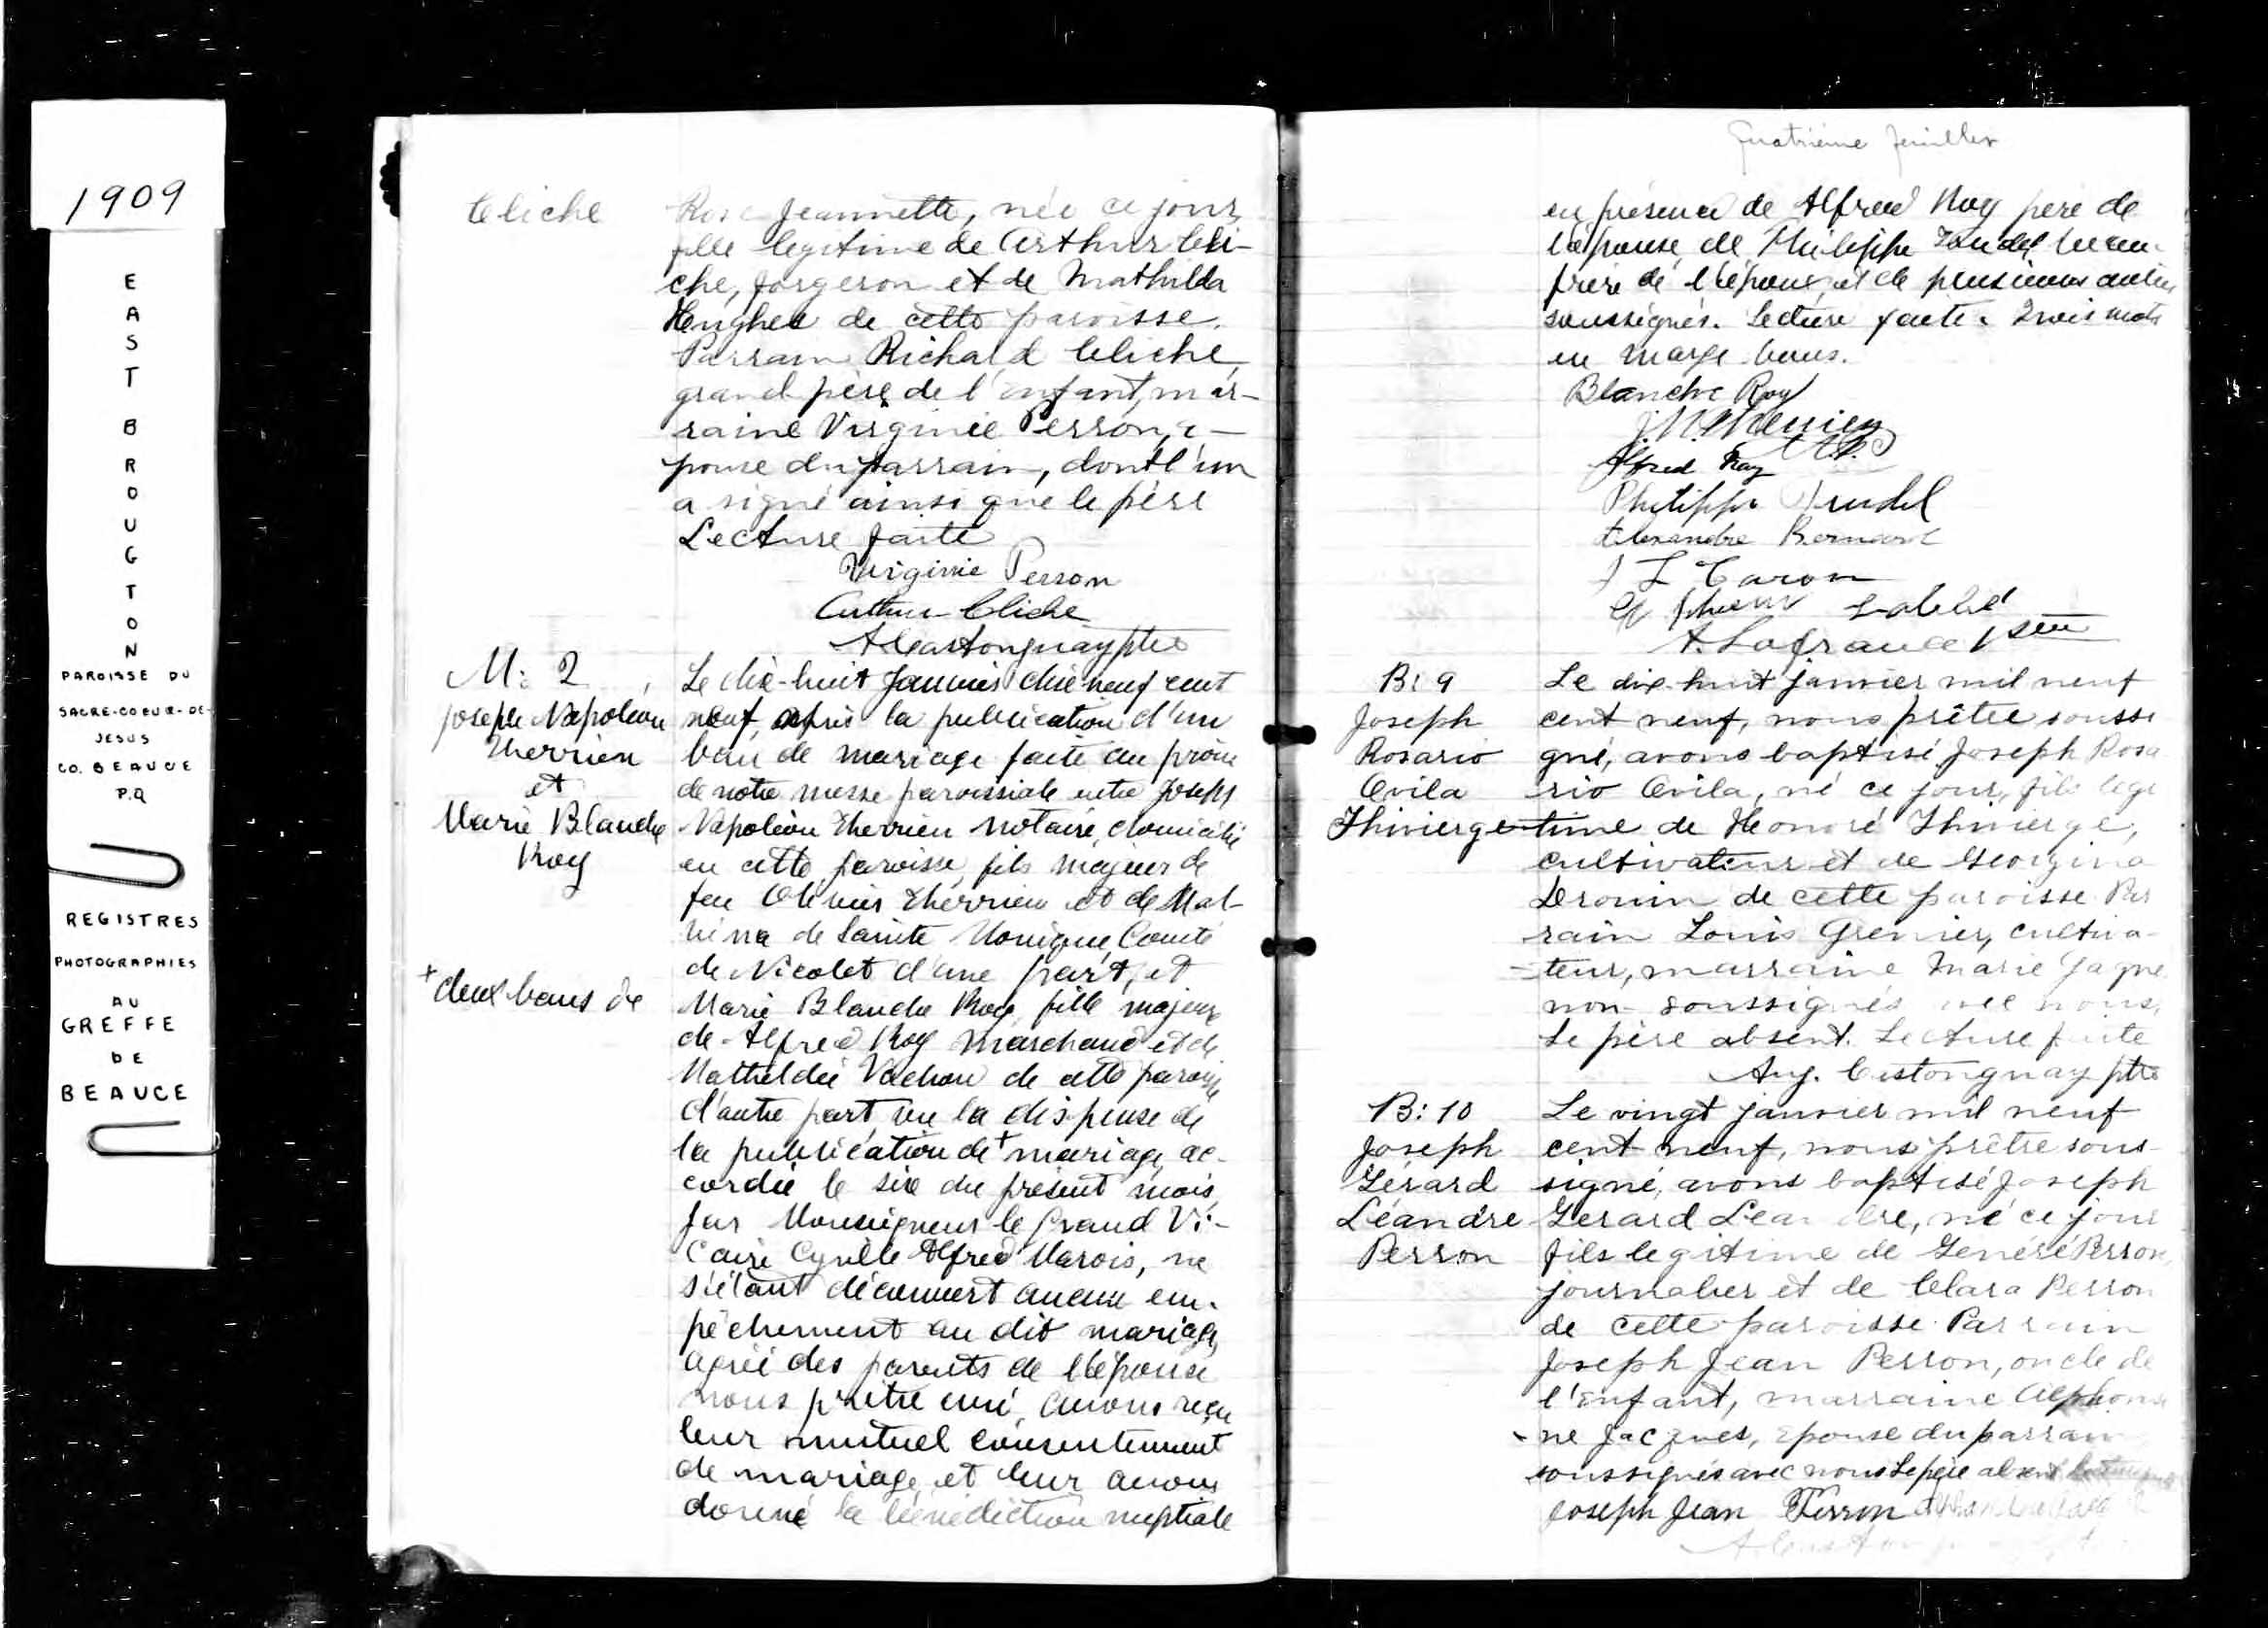 1909
EAST BROUGTON
PAROISSE DU
SACRE-COEUR-DE-
JESUS
CO. BEAUCE
P.Q
REGISTRES
PHOTOGRAPHIES
AU
GREFFE
DE
BEAUCE
Cliche
Rose Jeannette, née ce jour,
fille legitime de Arthur Cli-
che, forgeron et de Mathilda
Hughes de cette paroisse.
Parrain Richard Cliche,
grand père de l'enfant, mar-
raine Virginie Perron, é-
pouse du parrain, dont l'un
a signé ainsi que le père
Lecture faite
Virginie Perron
Arthur Cliche
A Castonguay ptre
M: 2
Joseph Napoléon
Therrien
et
Marie Blanche
Roy
+ deux bans de
Le dix-huit Janvier dix neuf cent
neuf, après la publication d'un
ban de mariage faite au prône
de notre messe paroissiale entre Joseph
Napoléon Therrien notaire, domicilié
en cette paroisse, fils majeur de
feu Therrien et de Mal-
vina de Sainte Monique, Comté
de Nicolet d'une part, et
Marie Blanche Roy, fille majeure
de Alfred Roy marchand et de
Vachon de cette paroisse
d'autre part, vu la dispense de
la publication de + mariage, ac-
cordée le six du présent mois,
par Monseigneur le Grand Vi-
caire Cyrille Alfred Marois, ne
s'étant découvert aucun em-
pêchement au dit mariage,
agréé des parents de l'épouse
nous prêtre curé, avons reçu
leur mutuel consentement
de mariage et leur avons
donné la bénédiction nuptiale
Quatrième feuillet
en présence de Alfred Roy père de
l'épouse, de Philippe Trudel
frère de l'époux, et de plusieurs autres
soussignés. Lecture faite. Trois mots
en marge bons.
Blanche Roy
J. N. Therrien
Alfred Roy
Philippe Trudel
Alexandre Bernard
J L Caron
A. Lafrance
B: 9
Joseph
Rosario
Ovila
Thivierge
Le dix-huit janvier mil neuf
cent neuf, nous prêtre soussi
gné, avons baptisé Joseph Rosa
rio Ovila, né ce jour, fils legi
time de Honoré Thivierge,
cultivateur et de Georgina
Drouin de cette paroisse. Par
rain Louis Grenier, cultiva-
teur, marraine Marie Jagne
non soussignés avec nous,
Le père absent. Lecture faite
Aug. Castonguay ptre
B: 10
Joseph
Gérard
Léandre
Perron
Le vingt janvier mil neuf
cent neuf, nous prêtre sous-
signé, avons baptisé Joseph
Gerard Leandre, né ce jour
fils legitime de Généré Perron,
journalier et de Clara Perron
de cette paroisse. Parrain
Joseph Jean Perron, oncle de
l'enfant, marraine Alphonsi
ne Jacques, épouse du parrain
soussignés avec nous Le père absent
Joseph Jean Perron